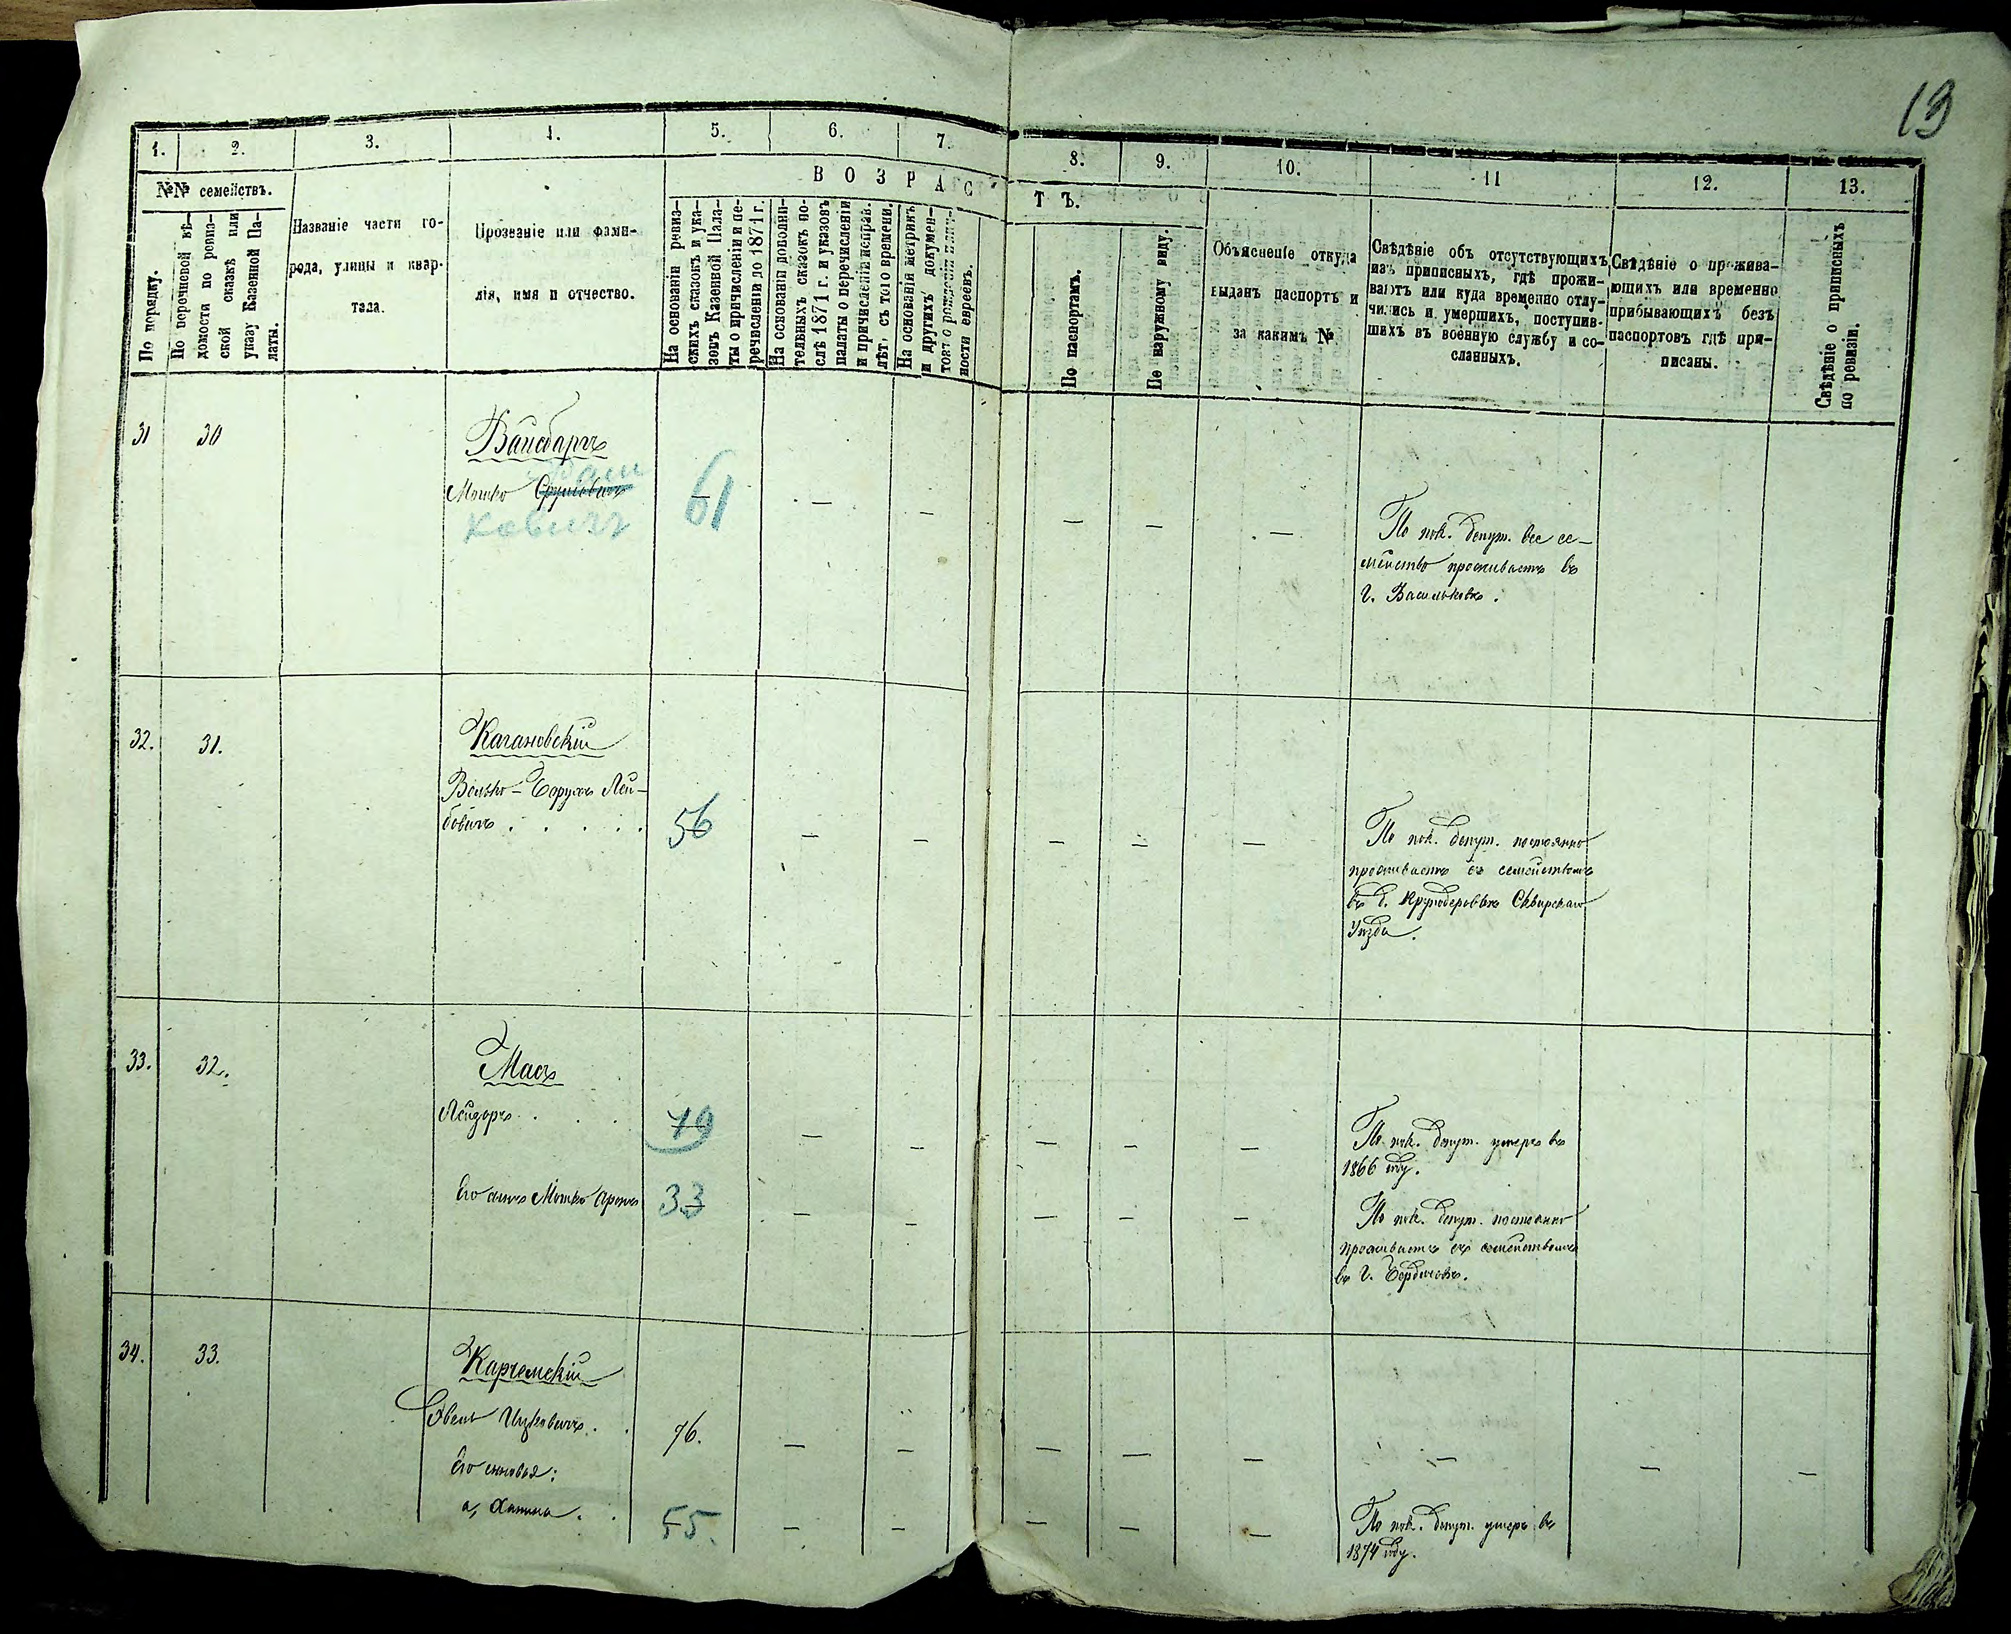 13
1. 2. 3. 4. 5. 6. 7. 8. 9. 10. 11 12. 13.
№№ семействъ.
По порядку.
По перечневой вѣ-
домости по ревиз-
ской сказкѣ или
указу Казенной Па-
латы.
Названіе части го-
рода, улицы и квар-
тала.
Прозваніе или фами-
лія, имя и отчество.
ВОЗРАСТЪ.
На основаніи ревиз-
скихъ сказокъ и ука-
зовъ Казенной Пала-
ты о причисленіи и пе-
речисленіи до 1871 г.
На основаніи дополни-
тельныхъ сказокъ по-
слѣ 1871 г. и указовъ
палаты о перечисленіи
и причисленіи исправ.
лѣт. съ того времени.
На основаніи метрикъ
и другихъ докумен-
товъ о рожденіи
ности евреевъ.
По паспортамъ.
По наружному виду.
Объясненіе откуда
выданъ паспортъ и
за какимъ №
Свѣдѣніе объ отсутствующихъ
изъ приписныхъ, гдѣ прожи-
ваютъ или куда временно отлу-
чились и умершихъ, поступив-
шихъ въ военную службу и со-
сланныхъ.
Свѣдѣніе о прожива-
ющихъ или временно
прибывающихъ безъ
паспортовъ гдѣ при-
писаны.
Свѣдѣніе о приписныхъ
по ревизіи.
31 30 Вайсбаргъ
Мошко
ковичъ
61 — — — — —
По пок. депут. все се-
мейство проживаетъ въ
г. Васильковѣ.
32. 31. Кагановскій
Волько-Борухъ Лей-
бовичъ . . . . . 56 — — — — —
По пок. депут. постоянно
проживаетъ съ семействомъ
въ д. Сквирскаго
Уѣзда.
33. 32. Масъ
Лейзоръ . . . 79 — — — — —
По пок. депут. умеръ въ
1866 году.
Его сынъ Мошко Аронъ 33 — — — — —
По пок. депут. постоянно
проживаетъ съ семействомъ
въ г. Бердичевѣ.
34. 33. Карчемскій
Ицковичъ . . 76. — — — — — — — —
Его сыновья:
а, . . 55. — — — — —
По пок. депут. умеръ въ
1874 году.